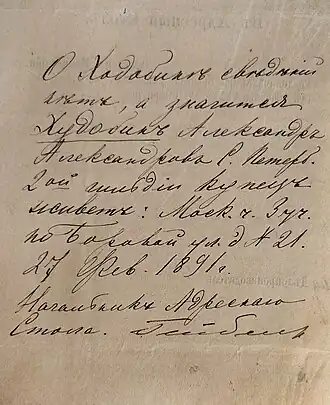 О Ходобинѣ свѣдѣній
нѣтъ, а значится
Худобинъ Александръ
Александровъ С. Петерб.
2ой гильдіи купецъ
живетъ: Моск. ч. 3 уч.
по Боровой ул. д № 21.
27 Фев. 1891 г.
Начальникъ Адреснаго
Стола.